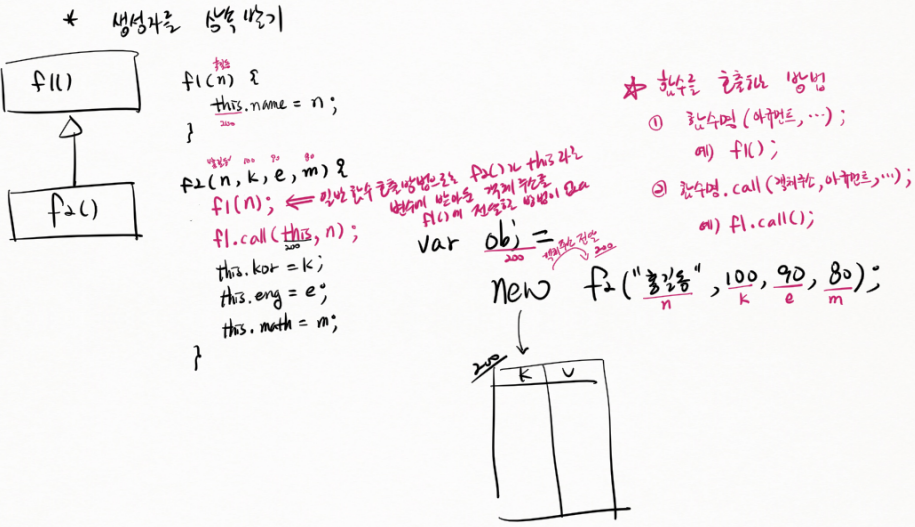 * 생성자를 상속 받기
f1()
f2()
홍길동
f1(n) {
this.name = n;
200
}
홍길동 100 90 80
f2(n, k, e, m) {
f1(n); ⇐ 일반 함수 호출 방법으로는 f2()가 this라는
변수에 받아온 객체 주소를
f1()에 전달할 방법이 없다
f1.call(this, n);
200
this.kor = k;
this.eng = e;
this.math = m;
}
☆ 함수를 호출하는 방법
① 함수명(아규먼트, …);
예) f1();
② 함수명.call(객체주소, 아규먼트, …);
예) f1.call();
var obj =
200
객체주소 전달
200
new f2("홍길동", 100, 90, 80);
n k e m
200
k v